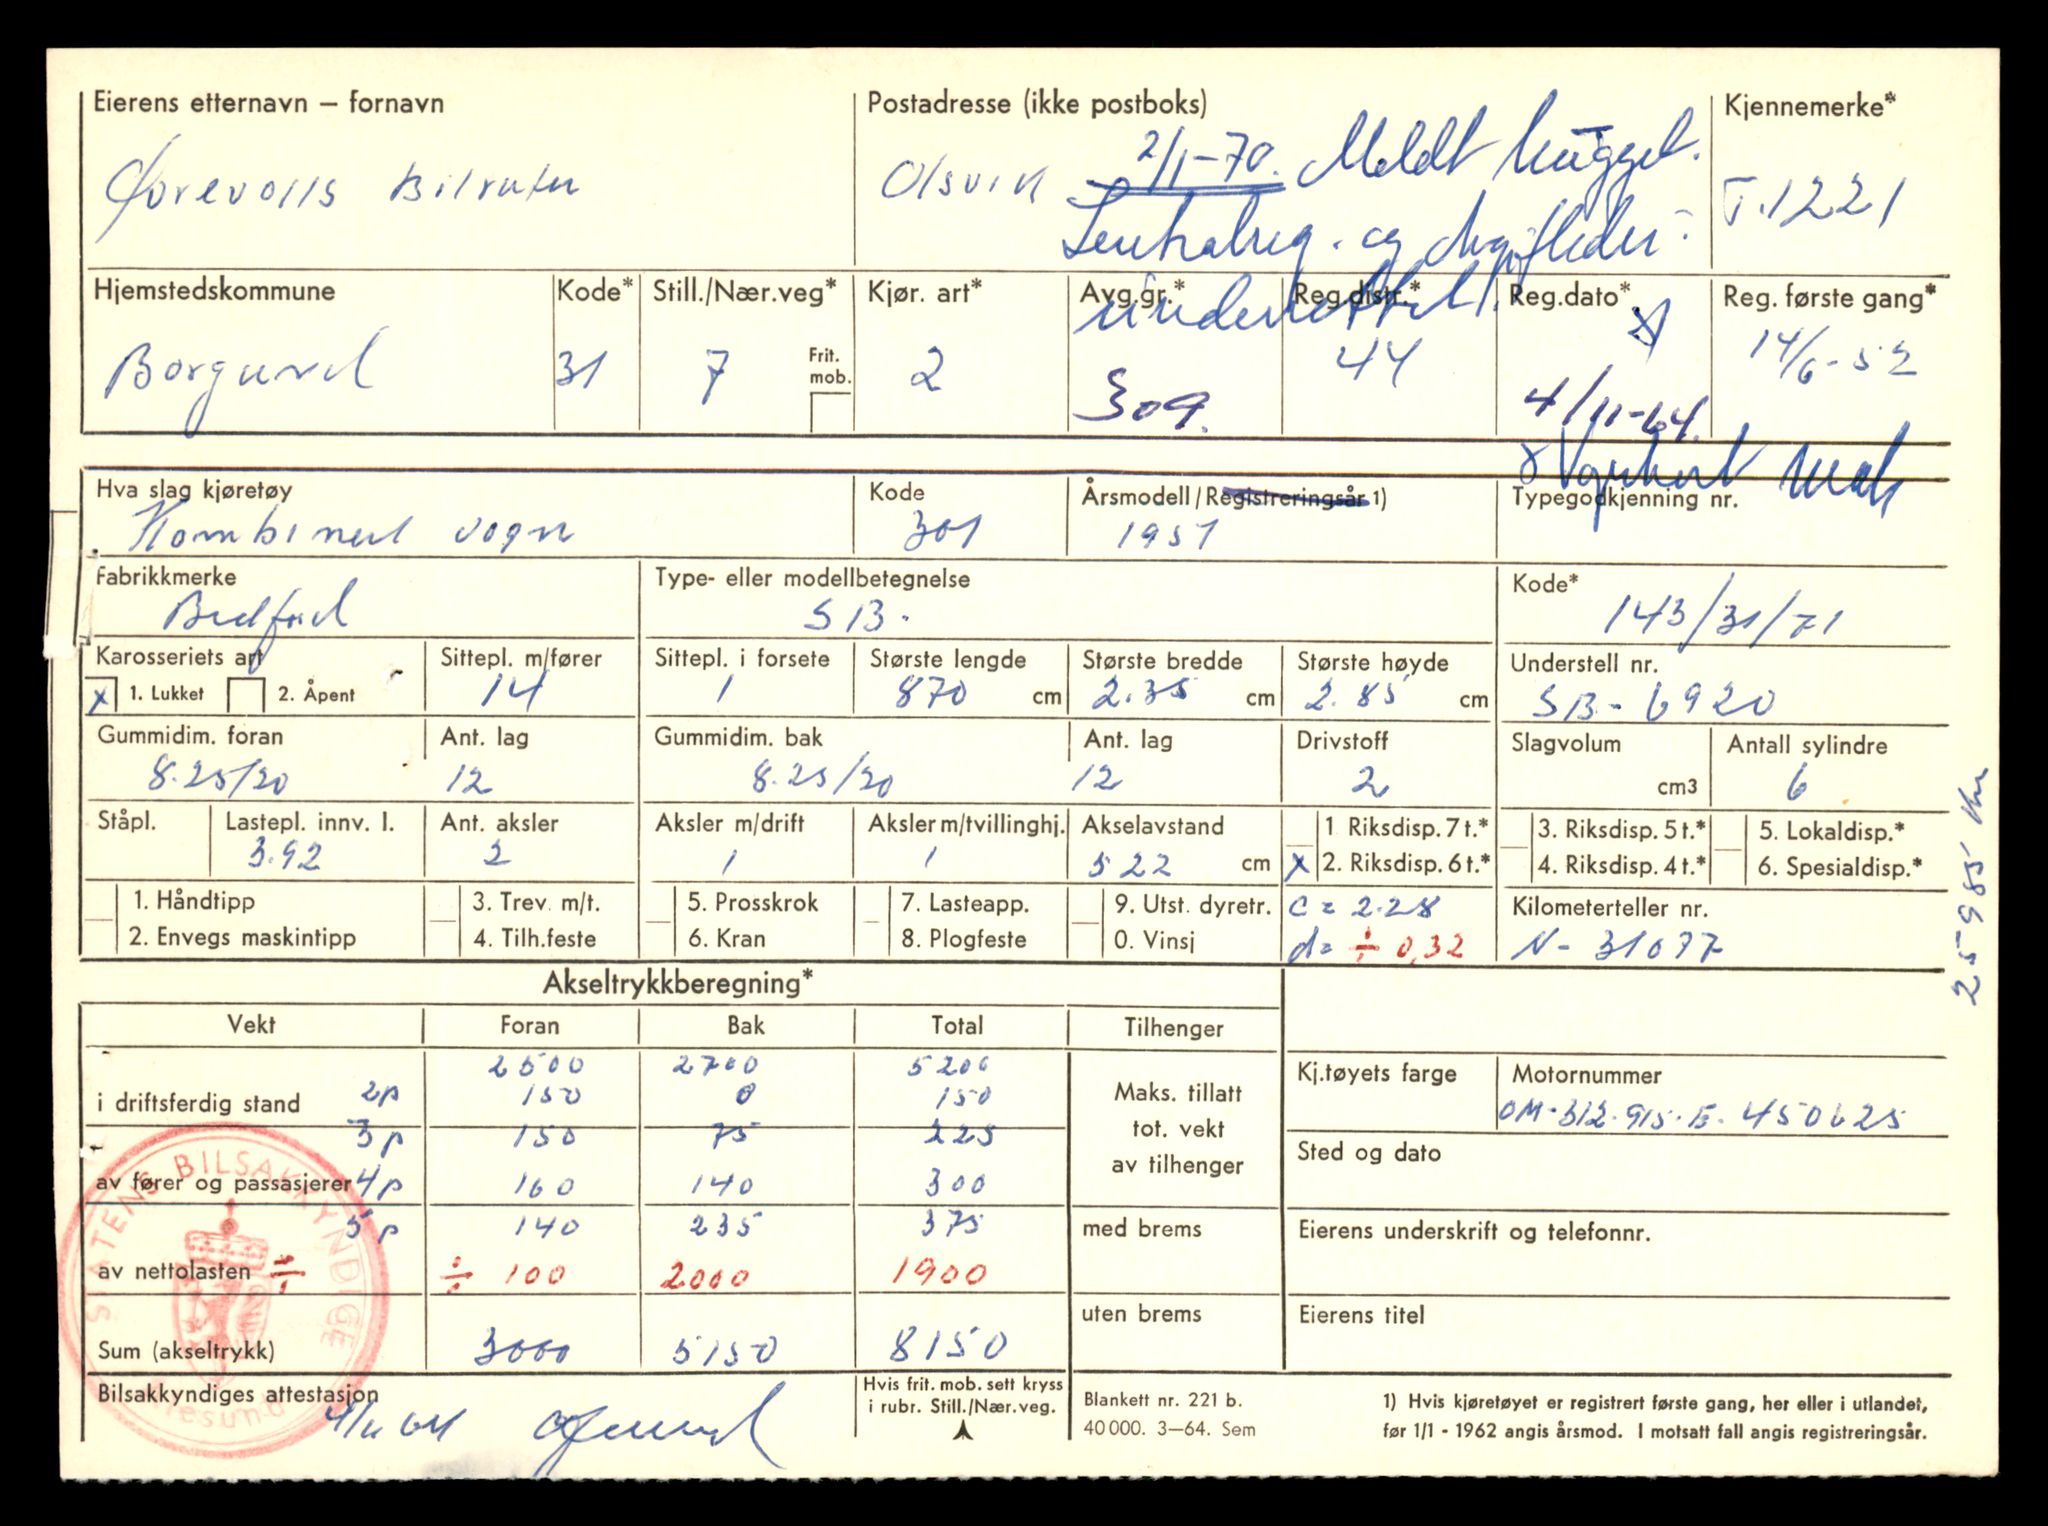 Eierens etternavn – fornavn
Postadresse (ikke postboks)
Kjennemerke*
Ørevolls Bilruter
Olsvik
2/1-70. Meldt hugget.
T.1221
Sentralreg. og
underrettet.
Hjemstedskommune
Kode*
Still./Nær.veg*
Kjør. art*
Avg.gr.*
Reg.distr.*
Reg.dato*
Reg. første gang*
Borgund
31
7
Frit. mob.
2
309.
44
4/11-64.
14/6-52
Hva slag kjøretøy
Kode
Årsmodell/Registreringsår 1)
Typegodkjenning nr.
x Vognkort mak
Kombinert vogn
301
1951
Fabrikkmerke
Type- eller modellbetegnelse
Kode*
Bedford
SB.
143/31/71
Karosseriets art
Sittepl. m/fører
Sittepl. i forsete
Største lengde
Største bredde
Største høyde
Understell nr.
x 1. Lukket
2. Åpent
14
1
870 cm
2.35 cm
2.85 cm
SB-6920
Gummidim. foran
Ant. lag
Gummidim. bak
Ant. lag
Drivstoff
Slagvolum
Antall sylindre
8.25/20
12
8.25/20
12
2
cm3
6
Ståpl.
Lastepl. innv. l.
Ant. aksler
Aksler m/drift
Aksler m/tvillinghj.
Akselavstand
1 Riksdisp. 7 t.*
3. Riksdisp. 5 t.*
5. Lokaldisp.*
3.92
2
1
1
522 cm
x 2. Riksdisp. 6 t.*
4. Riksdisp. 4 t.*
6. Spesialdisp.*
1. Håndtipp
3. Trev. m/t.
5. Prosskrok
7. Lasteapp.
9. Utst. dyretr.
c = 2.28
Kilometerteller nr.
2. Envegs maskintipp
4. Tilh.feste
6. Kran
8. Plogfeste
0. Vinsj
d= ÷ 0,32
N-31077
25985 Km
Akseltrykkberegning*
Vekt
Foran
Bak
Total
Tilhenger
2500
2700
5200
i driftsferdig stand
2p
150
0
150
Maks. tillatt
tot. vekt
av tilhenger
3p
150
75
225
av fører og passasjerer
4p
160
140
300
5p
140
235
375
med brems
av nettolasten ÷
÷ 100
2000
1900
Sum (akseltrykk)
3000
5150
8150
uten brems
Kj.tøyets farge
Motornummer
OM.312.915.E.450625
Sted og dato
Eierens underskrift og telefonnr.
Eierens titel
STATENS BILSAKKYNDIGE
Bilsakkyndiges attestasjon
4/11 64
Hvis frit. mob. sett kryss
i rubr. Still./Nær.veg.
Blankett nr. 221 b.
40 000. 3–64. Sem
1) Hvis kjøretøyet er registrert første gang, her eller i utlandet,
før 1/1 - 1962 angis årsmod. I motsatt fall angis registreringsår.